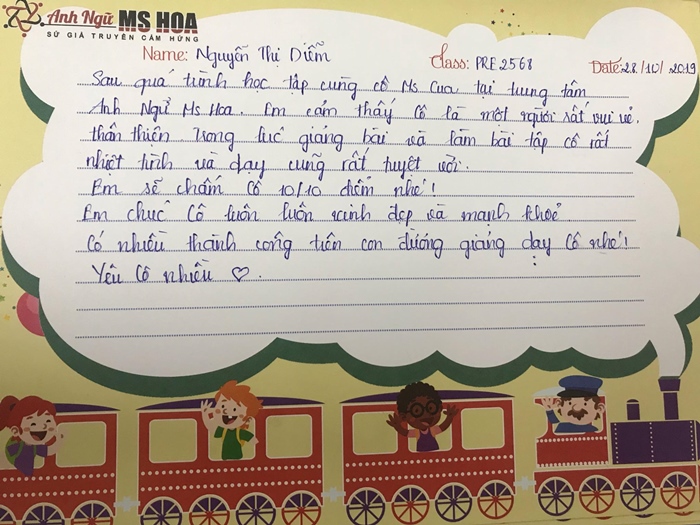 Anh Ngữ MS HOA
SỨ GIẢ TRUYỀN CẢM HỨNG
Name: Nguyễn Thị Diễm Class: PRE 2568 Date: 28/10/2019
Sau quá trình học tập cùng cô Ms Cua tại trung tâm
Anh Ngữ Ms Hoa. Em cảm thấy cô là một người rất vui vẻ,
thân thiện trong lúc giảng bài và làm bài tập cô rất
nhiệt tình và dạy cũng rất tuyệt vời.
Em sẽ chấm cô 10/10 điểm nhé!
Em chúc cô luôn luôn xinh đẹp và mạnh khoẻ
Có nhiều thành công trên con đường giảng dạy cô nhé!
Yêu cô nhiều ♡.